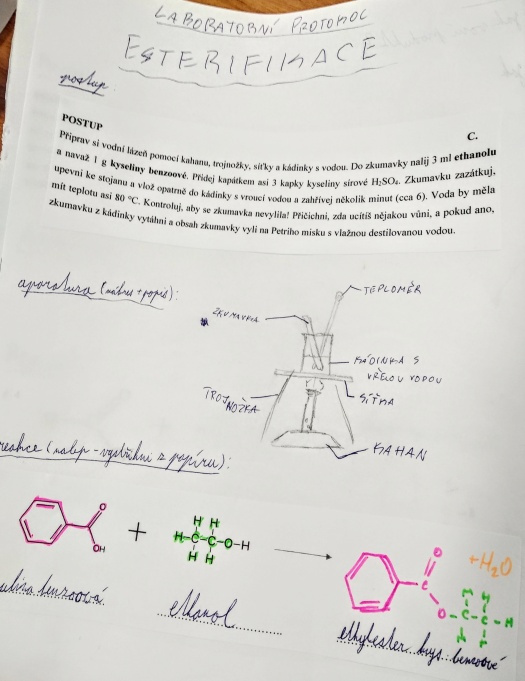 LABORATORNÍ PROTOKOL
ESTERIFIKACE
postup
C.
POSTUP
Připrav si vodní lázeň pomocí kahanu, trojnožky, síťky a kádinky s vodou. Do zkumavky nalij 3 ml ethanolu
a navaž 1 g kyseliny benzoové. Přidej kapátkem asi 3 kapky kyseliny sírové H₂SO₄. Zkumavku zazátkuj,
upevni ke stojanu a vlož opatrně do kádinky s vroucí vodou a zahřívej několik minut (cca 6). Voda by měla
mít teplotu asi 80 °C. Kontroluj, aby se zkumavka nevylila! Přičichni, zda ucítíš nějakou vůni, a pokud ano,
zkumavku z kádinky vytáhni a obsah zkumavky vylij na Petriho misku s vlažnou destilovanou vodou.
aparatura (nákres + popis):
TEPLOMĚR
ZKUMAVKA
KÁDINKA S
VŘELOU VODOU
TROJ
NOŽKA
SÍŤKA
KAHAN
reakce (nalep - vystřihni z papíru):
O
OH
+
H H
H-C-C-O-H
H H
O
C
O-C-C-H
H H
H H
+H₂O
benzoová
ethanol
ethylester kys. benzoové